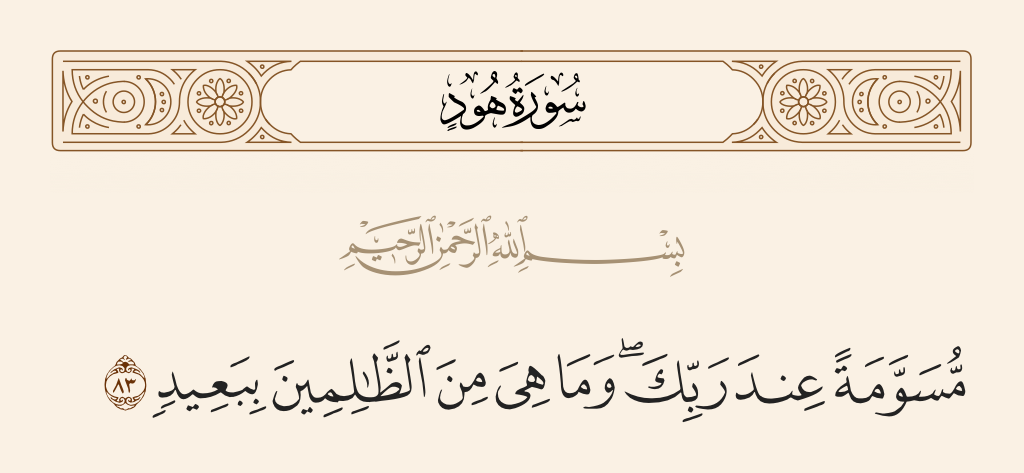 سُورَةُ هُودٍ
بِسْمِ ٱللَّهِ ٱلرَّحْمَٰنِ ٱلرَّحِيمِ
مُّسَوَّمَةً عِندَ رَبِّكَ ۖ وَمَا هِىَ مِنَ ٱلظَّـٰلِمِينَ بِبَعِيدٍ ٨٣